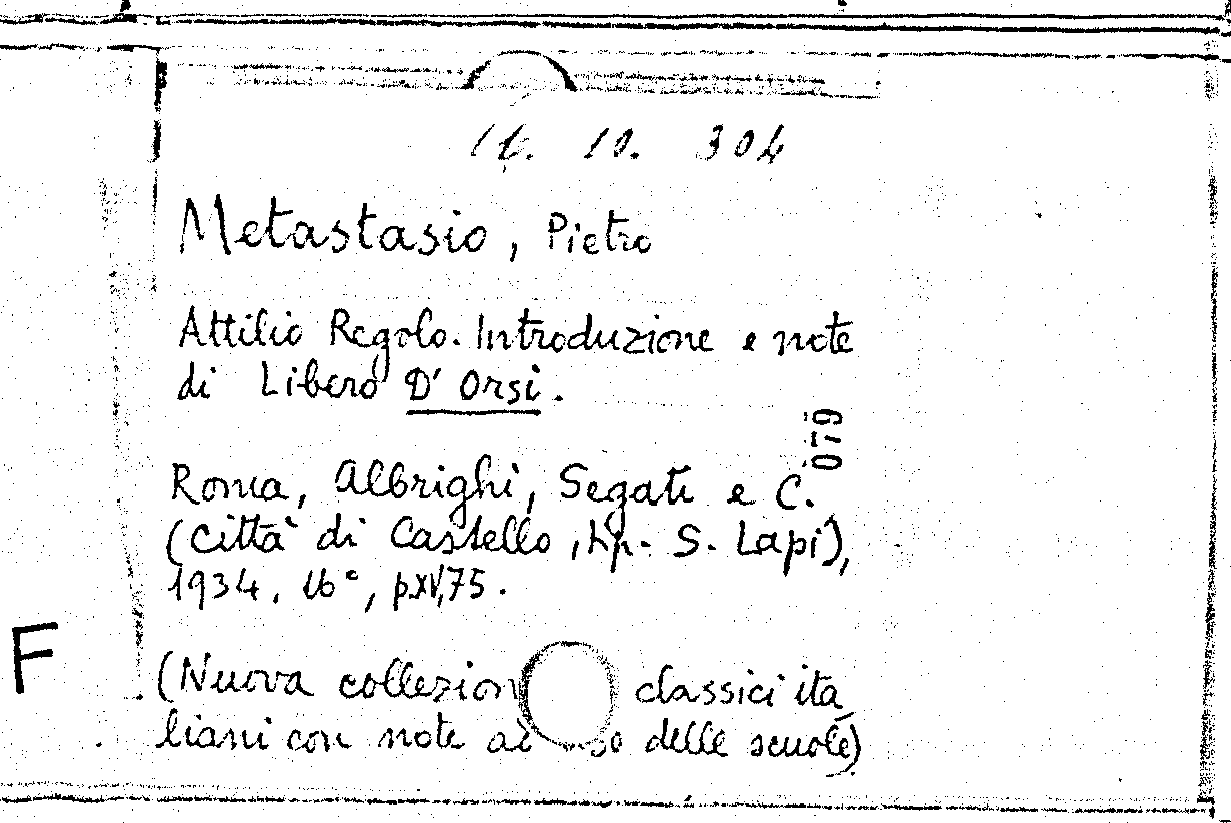 10. 304
Metastasio, Pietro
Attilio Regolo. Introduzione e note
di Libero D'Orsi.
079
Roma, Albrighi, Segati e C.
(Città di Castello, tip. S. Lapi),
1934, 16°, p.XV,75.
F
(Nuova collezion classici ita
liani con note ad so delle scuole)